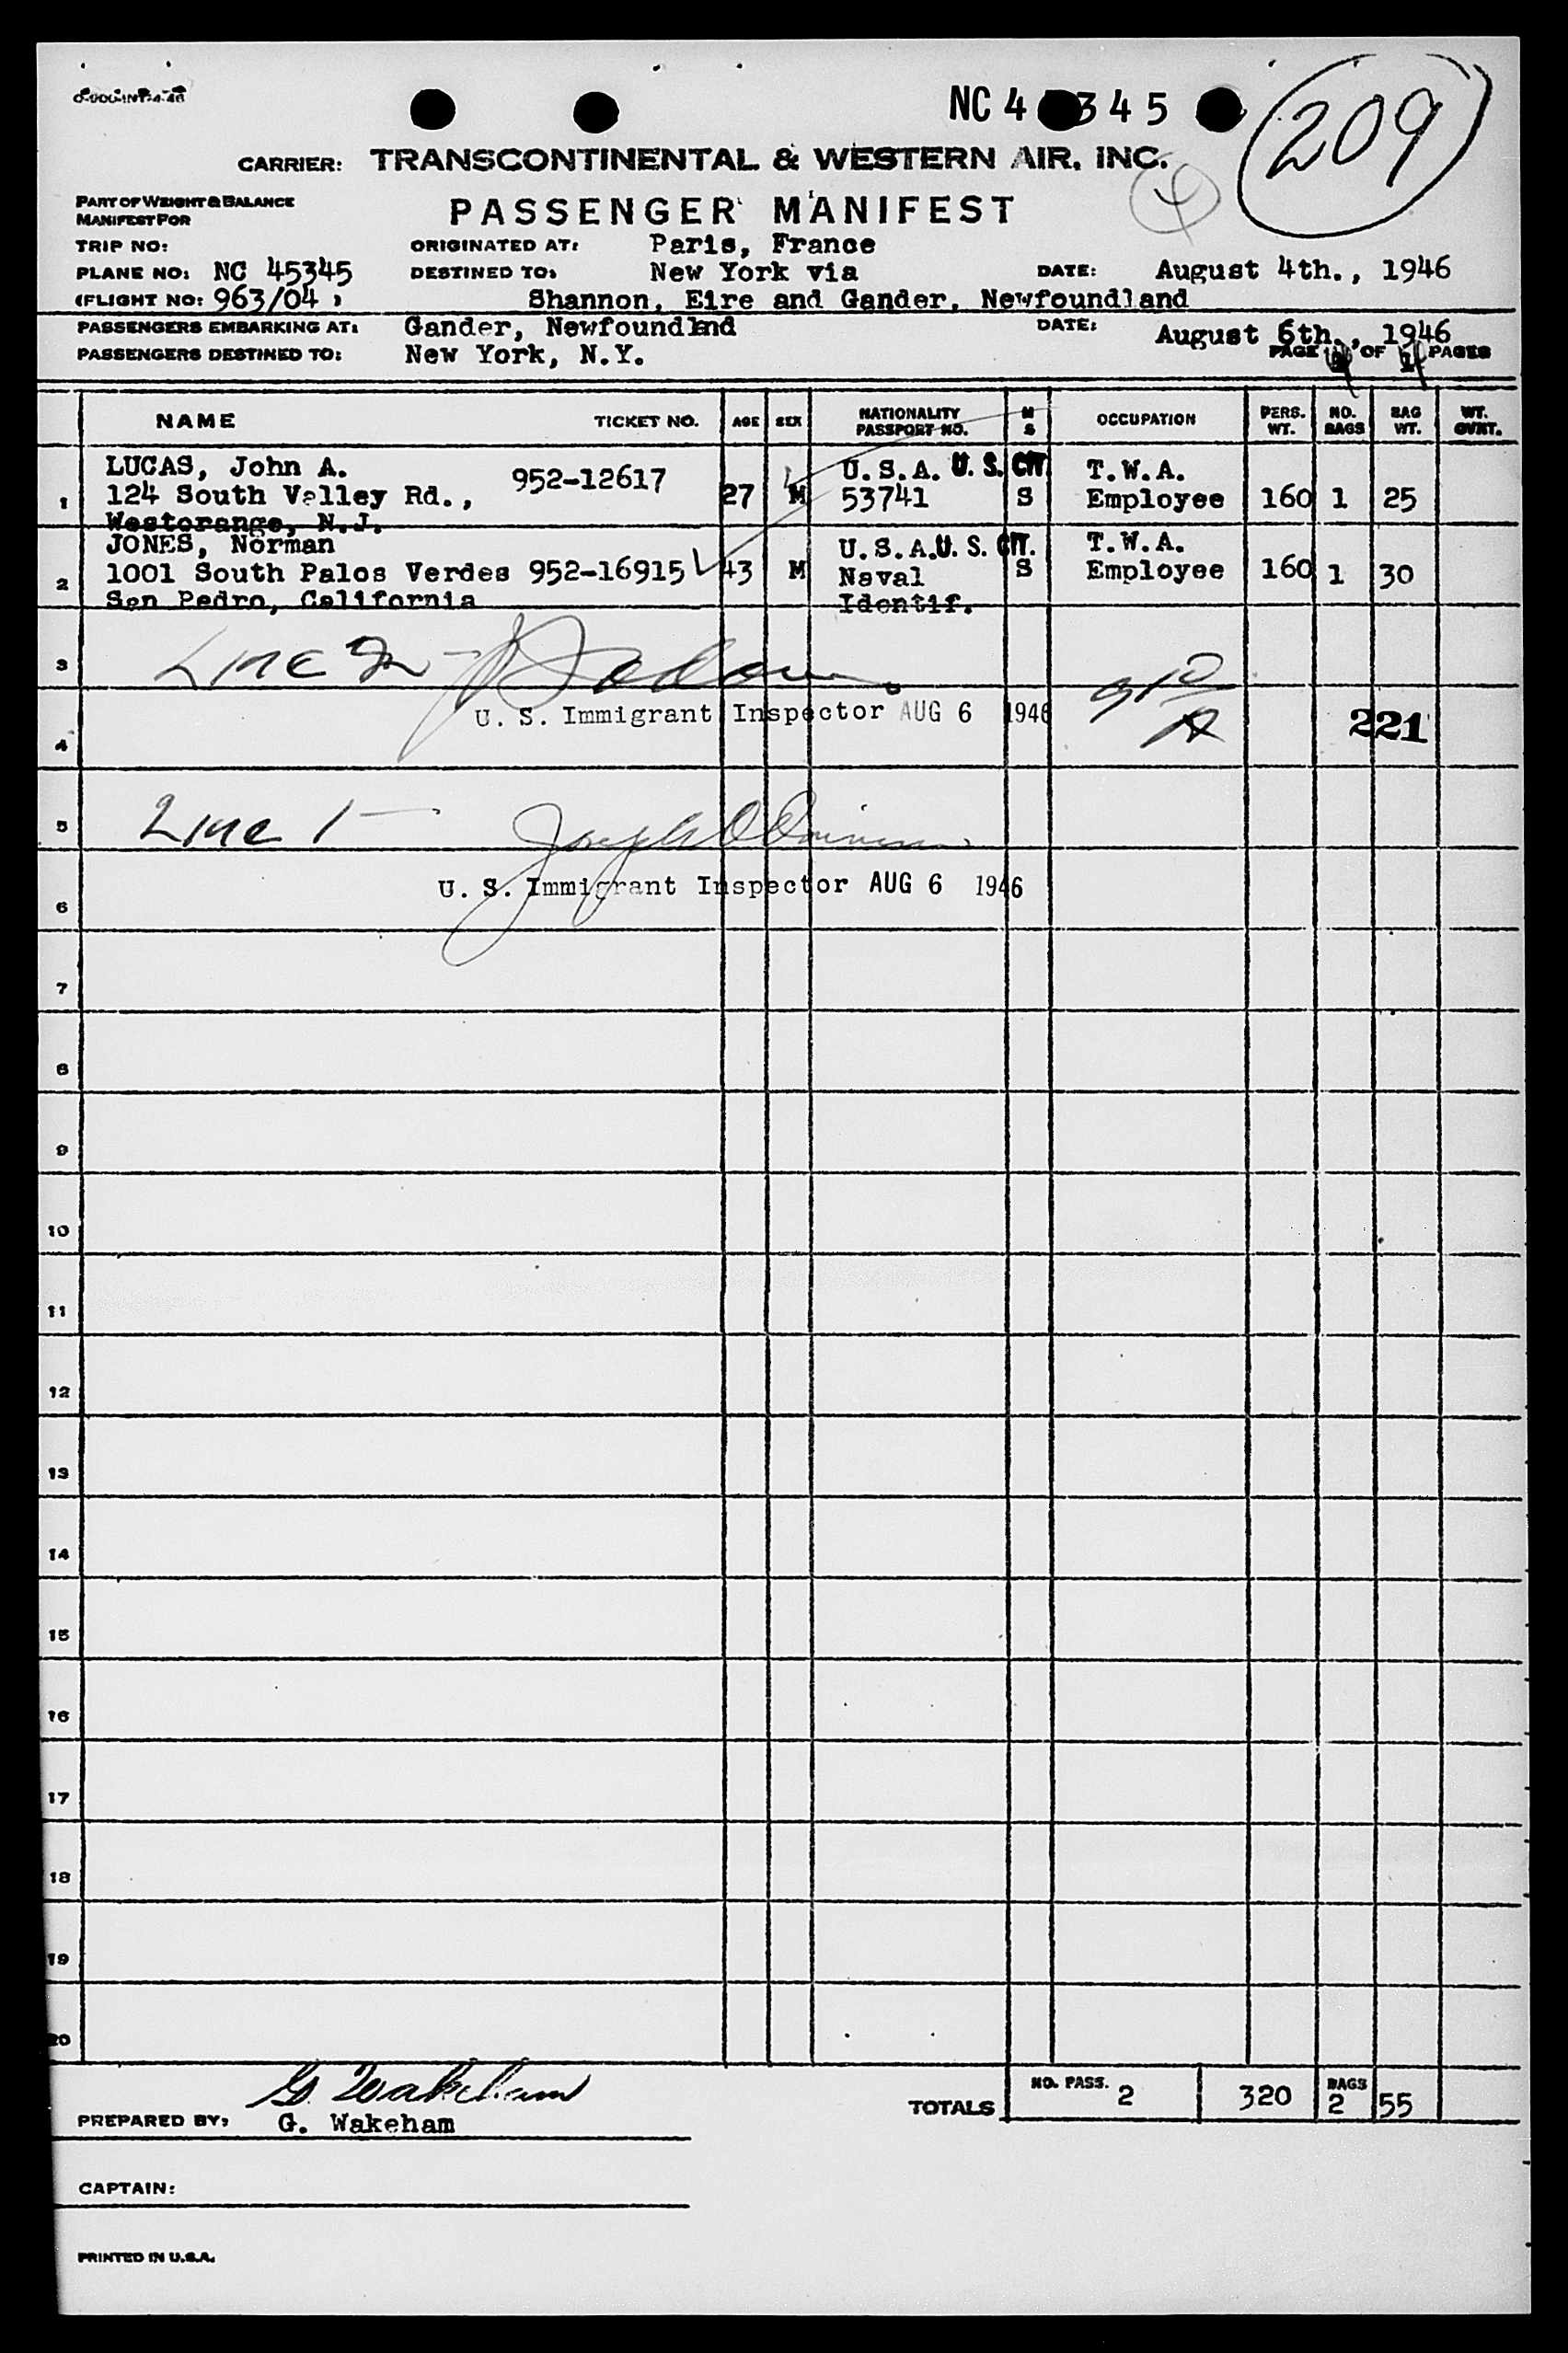 NC 4 345
209
CARRIER: TRANSCONTINENTAL & WESTERN AIR. INC.
PART OF WEIGHT & BALANCE
MANIFEST FOR
PASSENGER MANIFEST
TRIP NO: ORIGINATED AT: Paris, France
PLANE NO: NC 45345 DESTINED TO: New York via DATE: August 4th., 1946
(FLIGHT NO: 963/04 ) Shannon, Eire and Gander, Newfoundland
PASSENGERS EMBARKING AT: Gander, Newfoundlnd DATE: August 6th., 1946
PASSENGERS DESTINED TO: New York, N.Y. PAGE OF PAGES
NAME TICKET NO. AGE SEX NATIONALITY PASSPORT NO. M S OCCUPATION PERS. WT. NO. BAGS BAG WT. WT. OVNT.
LUCAS, John A. U.S.A. U. S. CIT. T.W.A.
1 124 South Valley Rd., 952-12617 27 M 53741 S Employee 160 1 25
Westorange, N.J.
JONES, Norman U.S.A. U. S. CIT. T.W.A.
2 1001 South Palos Verdes 952-16915 43 M Naval S Employee 160 1 30
San Pedro, California Identif.
3 Line 2
U. S. Immigrant Inspector AUG 6 1946 221
4
5 Line 1
U. S. Immigrant Inspector AUG 6 1946
6
7
8
9
10
11
12
13
14
15
16
17
18
19
20
G. Wakeham
TOTALS NO. PASS. 2 320 BAGS 2 55
PREPARED BY: G. Wakeham
CAPTAIN:
PRINTED IN U.S.A.